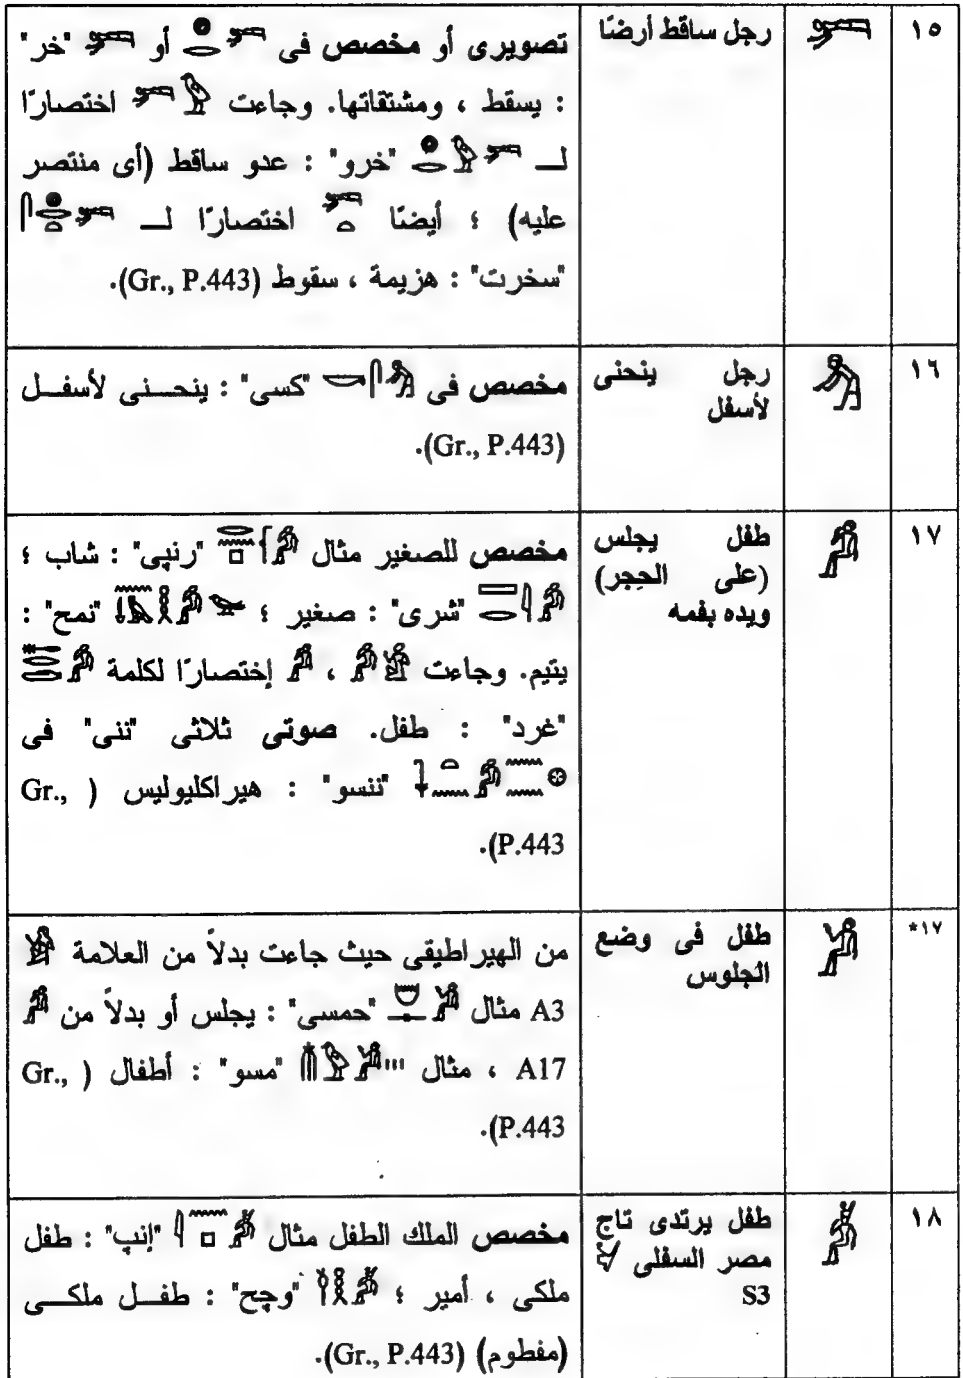 ١٥
رجل ساقط أرضًا
تصويرى أو مخصص فى 𓀒𓂋𓐍 أو 𓀒 "خر"
: يسقط ، ومشتقاتها. وجاءت 𓀒𓅱 اختصارًا
لـ 𓀒𓅱𓂋𓐍 "خرو" : عدو ساقط (أى منتصر
عليه) ؛ أيضًا 𓀒𓏏 اختصارًا لـ 𓀒𓏏𓂋𓐍𓋴
"سخرت" : هزيمة ، سقوط (Gr., P.443).
١٦
رجل ينحنى
لأسفل
مخصص فى 𓀓𓋴𓎡 "كسى" : ينحنى لأسفل
(Gr., P.443).
١٧
طفل يجلس
(على الحِجر)
ويده بفمه
مخصص للصغير مثال "رنپى" : شاب ؛
"شرى" : صغير ؛ "نمح" :
يتيم. وجاءت 𓀔𓀀 ، 𓀔 إختصارًا لكلمة
"غرد" : طفل. صوتى ثلاثى "ننى" فى
"ننسو" : هيراكليوليس ( Gr.,
P.443).
١٧*
طفل فى وضع
الجلوس
من الهيراطيقى حيث جاءت بدلاً من العلامة 𓀃
A3 مثال "حمسى" : يجلس أو بدلاً من 𓀔
A17 ، مثال "مسو" : أطفال ( Gr.,
P.443).
١٨
طفل يرتدى تاج
مصر السفلى 𓋔
S3
مخصص الملك الطفل مثال 𓀖𓊪𓈖𓇋 "إنپ" : طفل
ملكى ، أمير ؛ "وچح" : طفل ملكى
(مفطوم) (Gr., P.443).